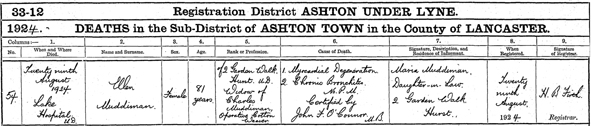 33-12 Registration District ASHTON UNDER LYNE.
1924. DEATHS in the Sub-District of ASHTON TOWN in the County of LANCASTER.
Columns:— 1. 2. 3. 4. 5. 6. 7. 8. 9.
No. When and Where Died. Name and Surname. Sex. Age. Rank or Profession. Cause of Death. Signature, Description, and Residence of Informant. When Registered. Signature of Registrar.
54 Twenty ninth August 1924 Lake Hospital U.D.
Ellen Muddiman
Female
81 years
of 2 Garden Walk Hurst U.D. Widow of Charles Muddiman, Operative Cotton Weaver
1 Myocardial Degeneration
2 Chronic Bronchitis
N.P.M.
Certified by
John F. O'Connor M.B.
Maria Muddiman
Daughter-in-Law
2 Garden Walk
Hurst
Twenty ninth August 1924
H B Registrar.